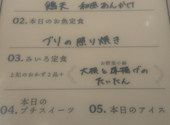 鶏天 和風あんかけ
02.本日のお魚定食
ブリの照り焼き
03.みいろ定食
お野菜小鉢
大根と厚揚げの
たいたん
04.本日の
プチスイーツ
05.本日のアイス